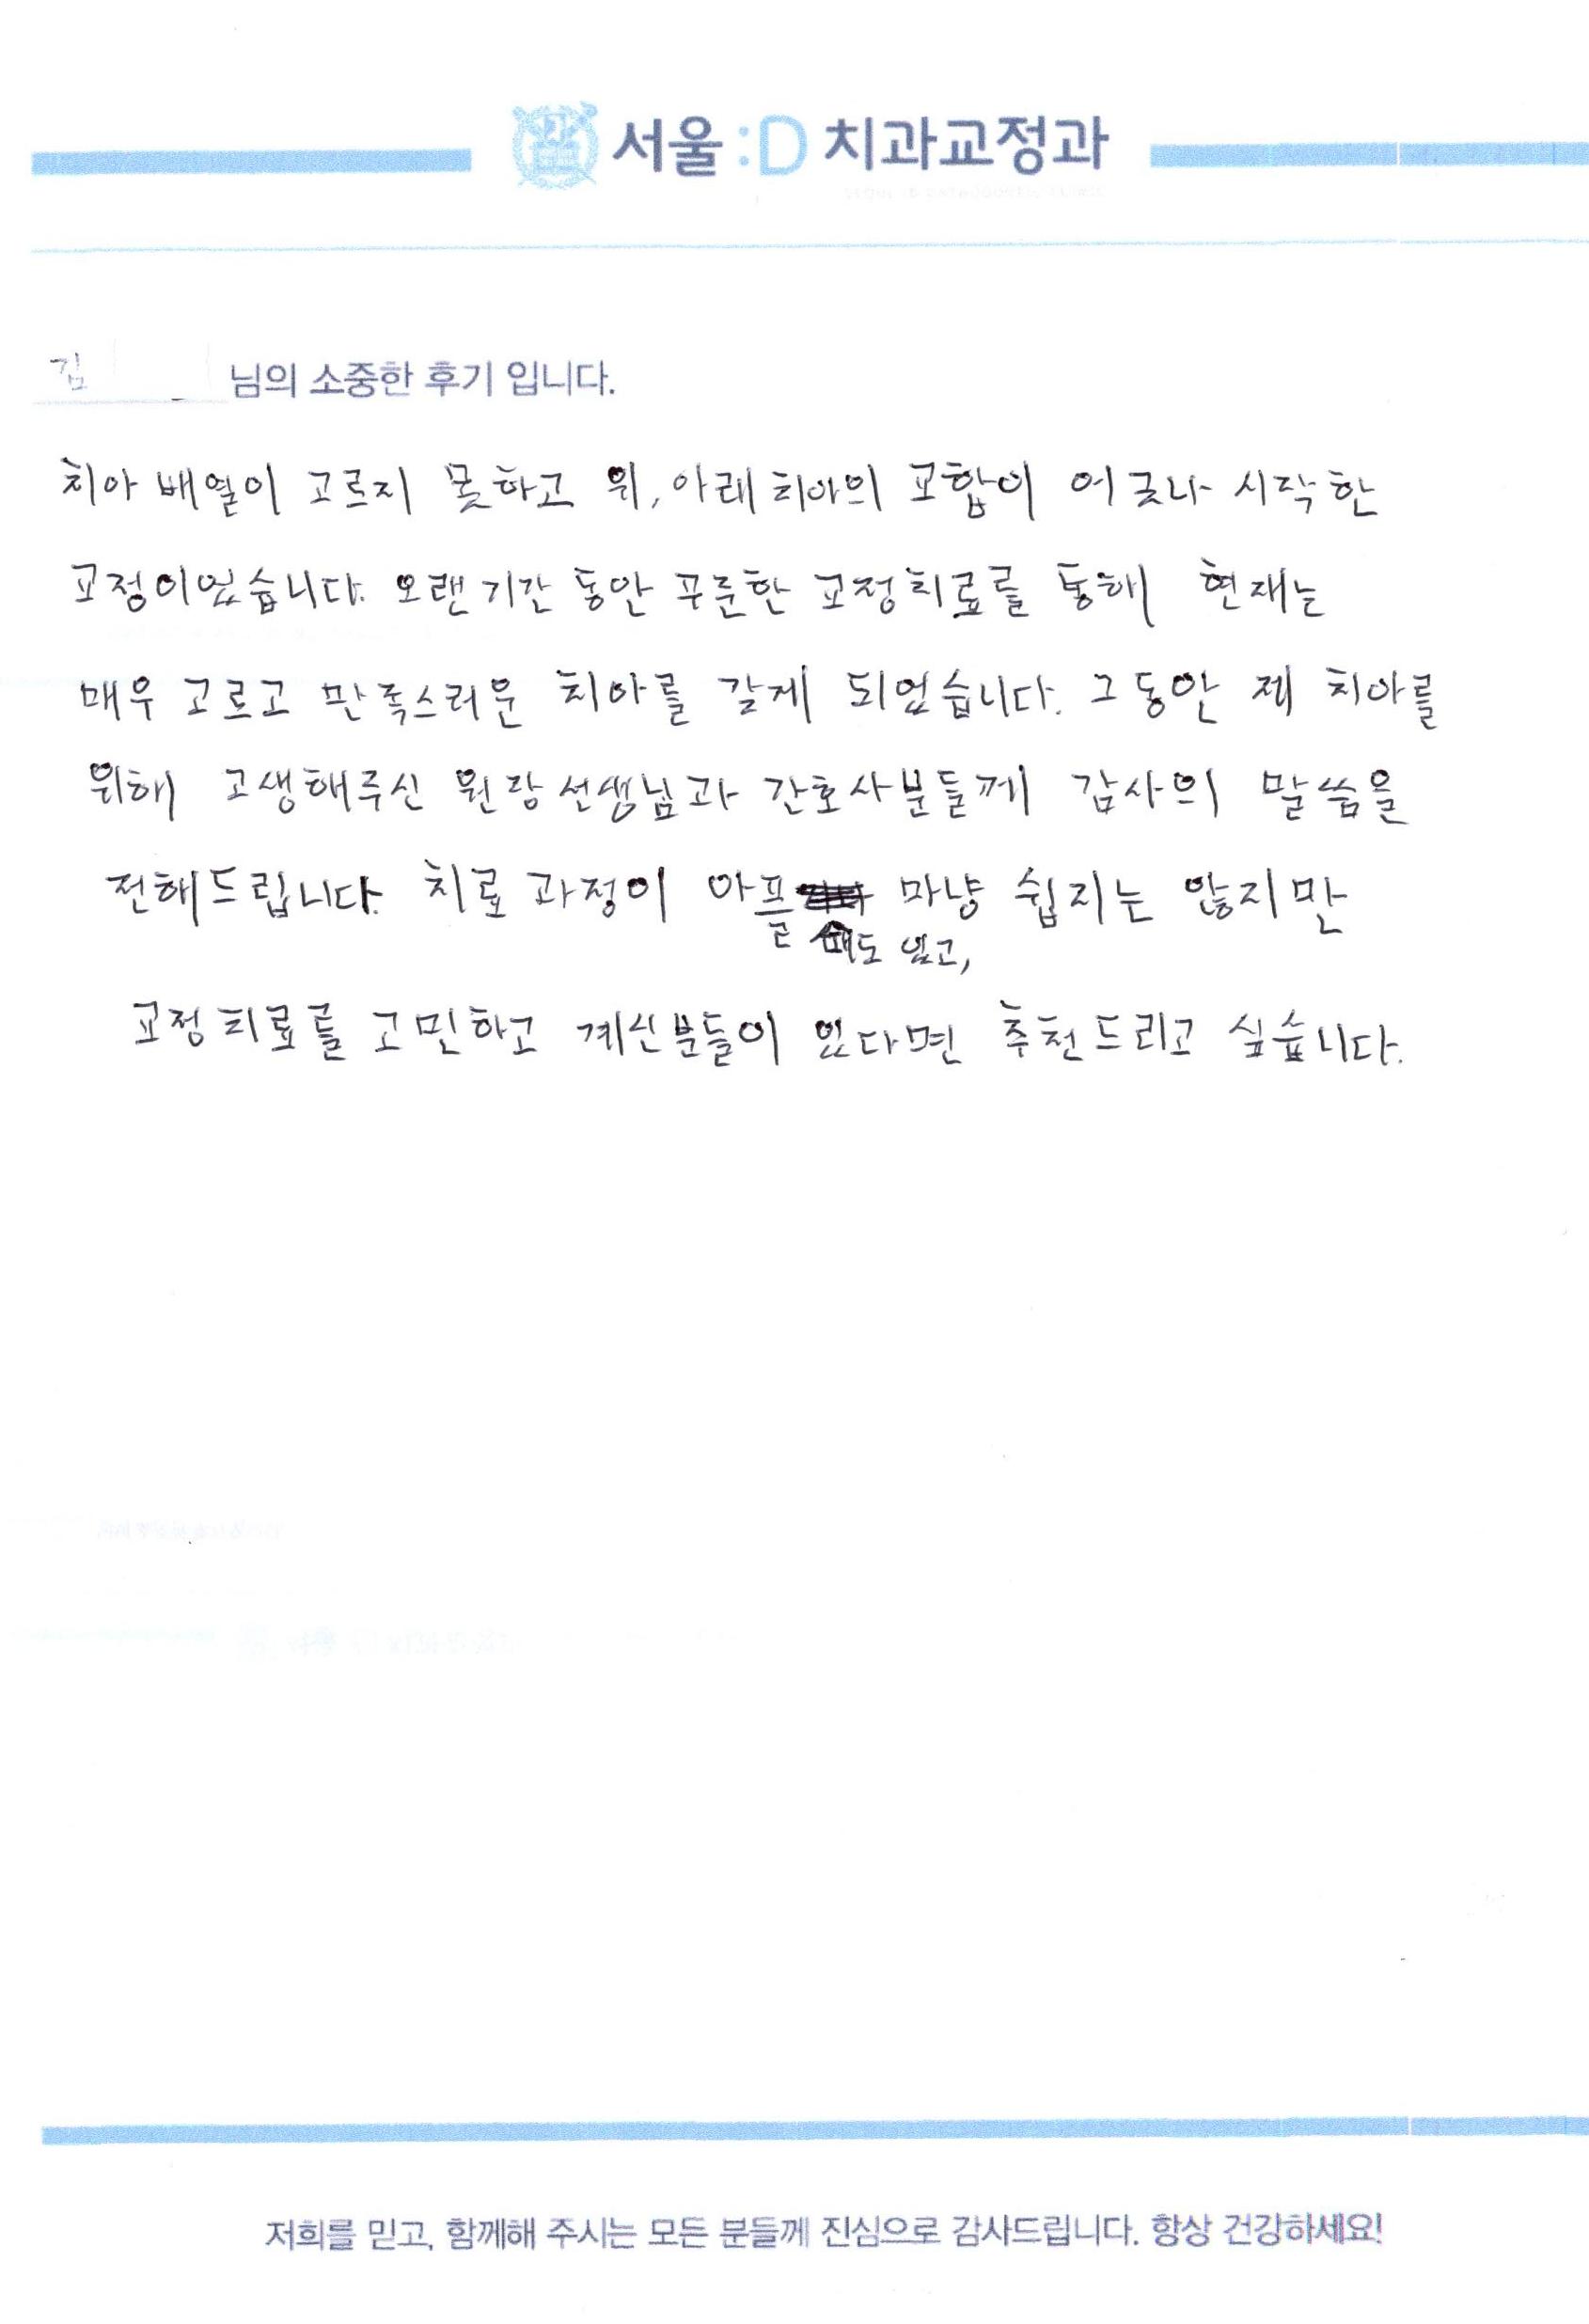 서울:D 치과교정과
김 님의 소중한 후기 입니다.
치아 배열이 고르지 못하고 위, 아래 치아의 교합이 어긋나 시작한
교정이었습니다. 오랜기간 동안 꾸준한 교정치료를 통해 현재는
매우 고르고 만족스러운 치아를 갖게 되었습니다. 그동안 제 치아를
위해 고생해주신 원장선생님과 간호사분들께 감사의 말씀을
전해드립니다. 치료 과정이 아플 마냥 쉽지는 않지만
때도 있고,
교정치료를 고민하고 계신분들이 있다면 추천드리고 싶습니다.
저희를 믿고, 함께해 주시는 모든 분들께 진심으로 감사드립니다. 항상 건강하세요!